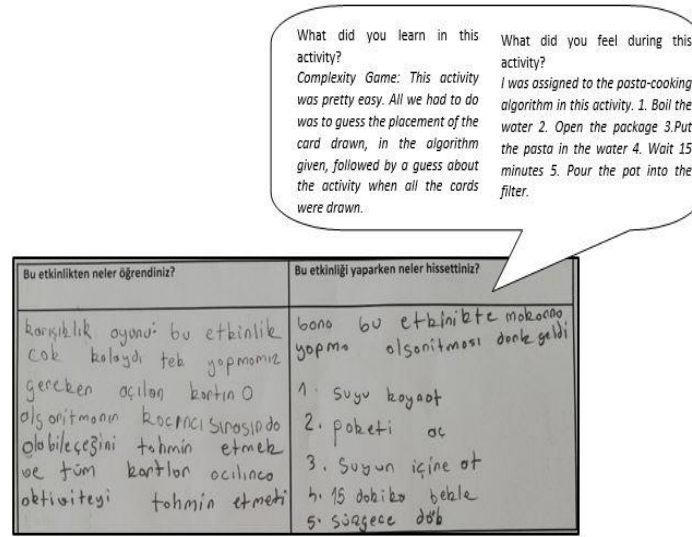 What did you learn in this
activity?
Complexity Game: This activity
was pretty easy. All we had to do
was to guess the placement of the
card drawn, in the algorithm
given, followed by a guess about
the activity when all the cards
were drawn.
What did you feel during this
activity?
I was assigned to the pasta-cooking
algorithm in this activity. 1. Boil the
water 2. Open the package 3.Put
the pasta in the water 4. Wait 15
minutes 5. Pour the pot into the
filter.
Bu etkinlikten neler öğrendiniz?
karışıklık oyunu: bu etkinlik
çok kolaydı tek yapmamız
gereken açılan kartın O
algoritmanın kaçıncı sırasında
olabileceğini tahmin etmek
ve tüm kartlar açılınca
aktiviteyi tahmin etmeti
Bu etkinliği yaparken neler hissettiniz?
bana bu etkinikte makarna
yapma algoritması denk geldi
1. suyu kaynat
2. paketi aç
3. suyun içine at
4. 15 dakika bekle
5. süzgece dök